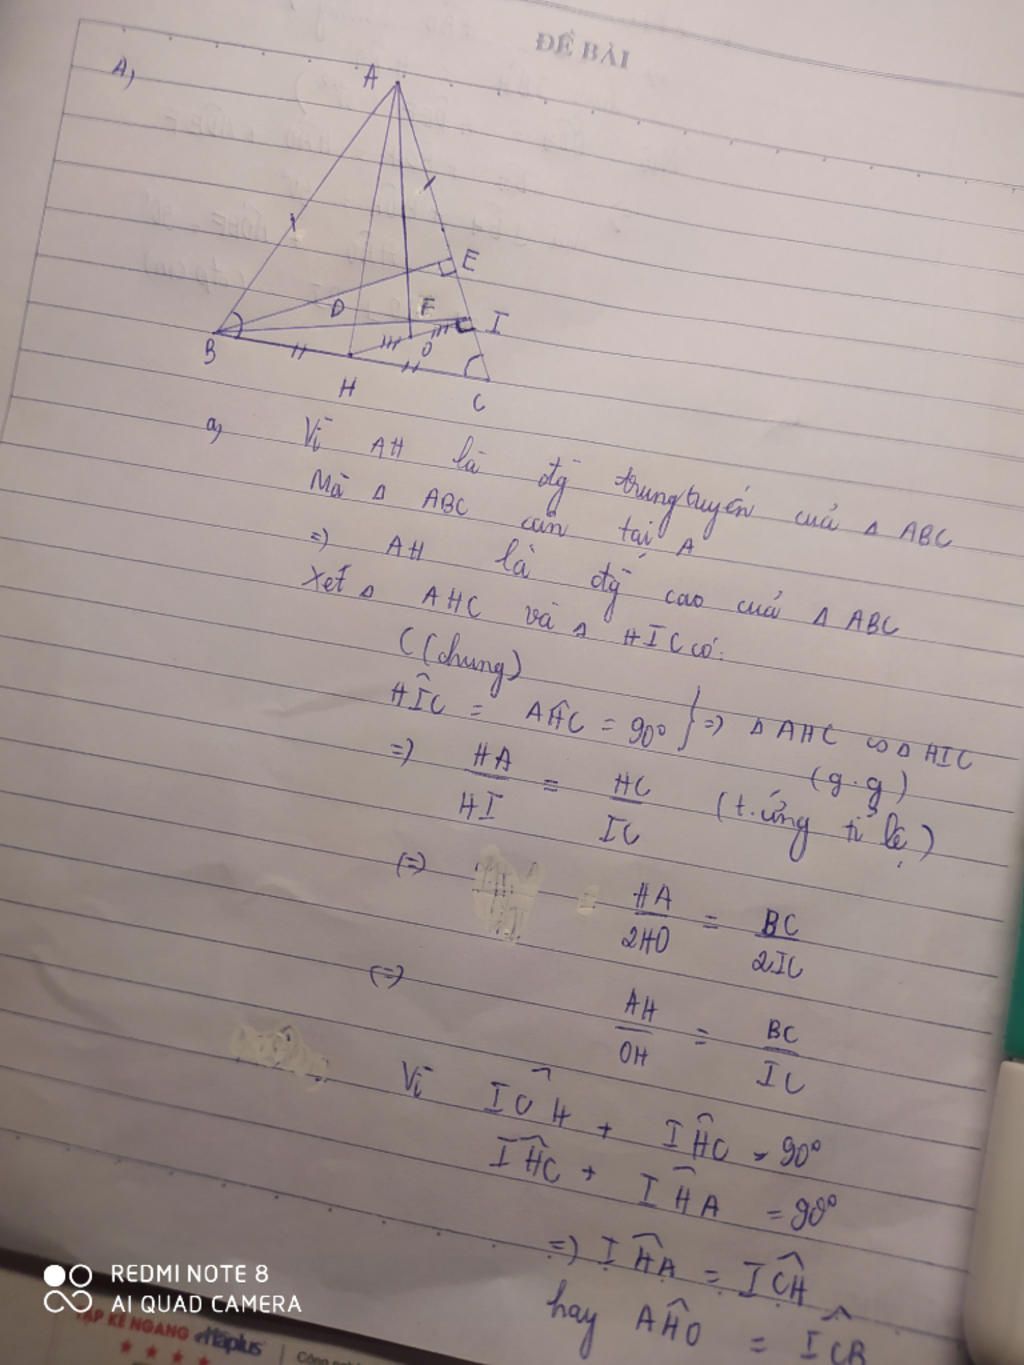 ĐỀ BÀI
A,
A
E
D
F
I
B
O
H
C
a, Vì AH là đg trung tuyến cuả Δ ABC
Mà Δ ABC cân tại A
=> AH là đg cao cuả Δ ABC
Xét Δ AHC và Δ HIC có:
C (chung)
HÎC = AĤC = 90° } => Δ AHC ∽ Δ HIC
(g.g)
=> HA/HI = HC/IC (t.ứng tỉ lệ)
(=) HA/2HO = BC/2IC
(=) AH/OH = BC/IC
Vì IĈH + IĤC = 90°
IĤC + IĤA = 90°
=> IĤA = IĈH
hay AĤO = IĈB
REDMI NOTE 8
AI QUAD CAMERA
TẬP KẺ NGANG Haplus